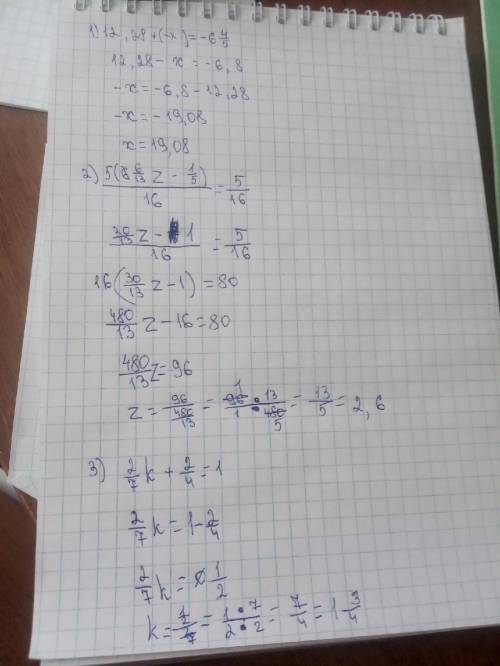 1) 12,28+(-x)=-6 4/5
12,28 - x = -6,8
-x=-6,8-12,28
-x=-19,08
x=19,08
2) 5(6/13 z - 1/5)/16 = 5/16
(30/13 z - 1)/16 = 5/16
16(30/13 z - 1) = 80
480/13 z - 16 = 80
480/13 z = 96
z = 96/(480/13) = (96 · 13)/(1 · 480) = 13/5 = 2,6
3) 2/7 k + 2/4 = 1
2/7 k = 1 - 2/4
2/7 k = 1/2
k = (1/2)/(2/7) = (1 · 7)/(2 · 2) = 7/4 = 1 3/4